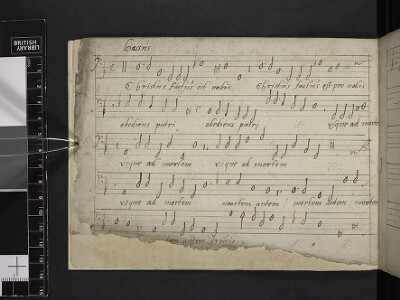 Bassus
Christus factus est nobis Christus factus est pro nobis
obediens patri obediens patri usque ad mortem
usque ad mortem usque ad mortem
usque ad mortem mortem autem mortem autem mortem
autem crucis
BRITISH
LIBRARY